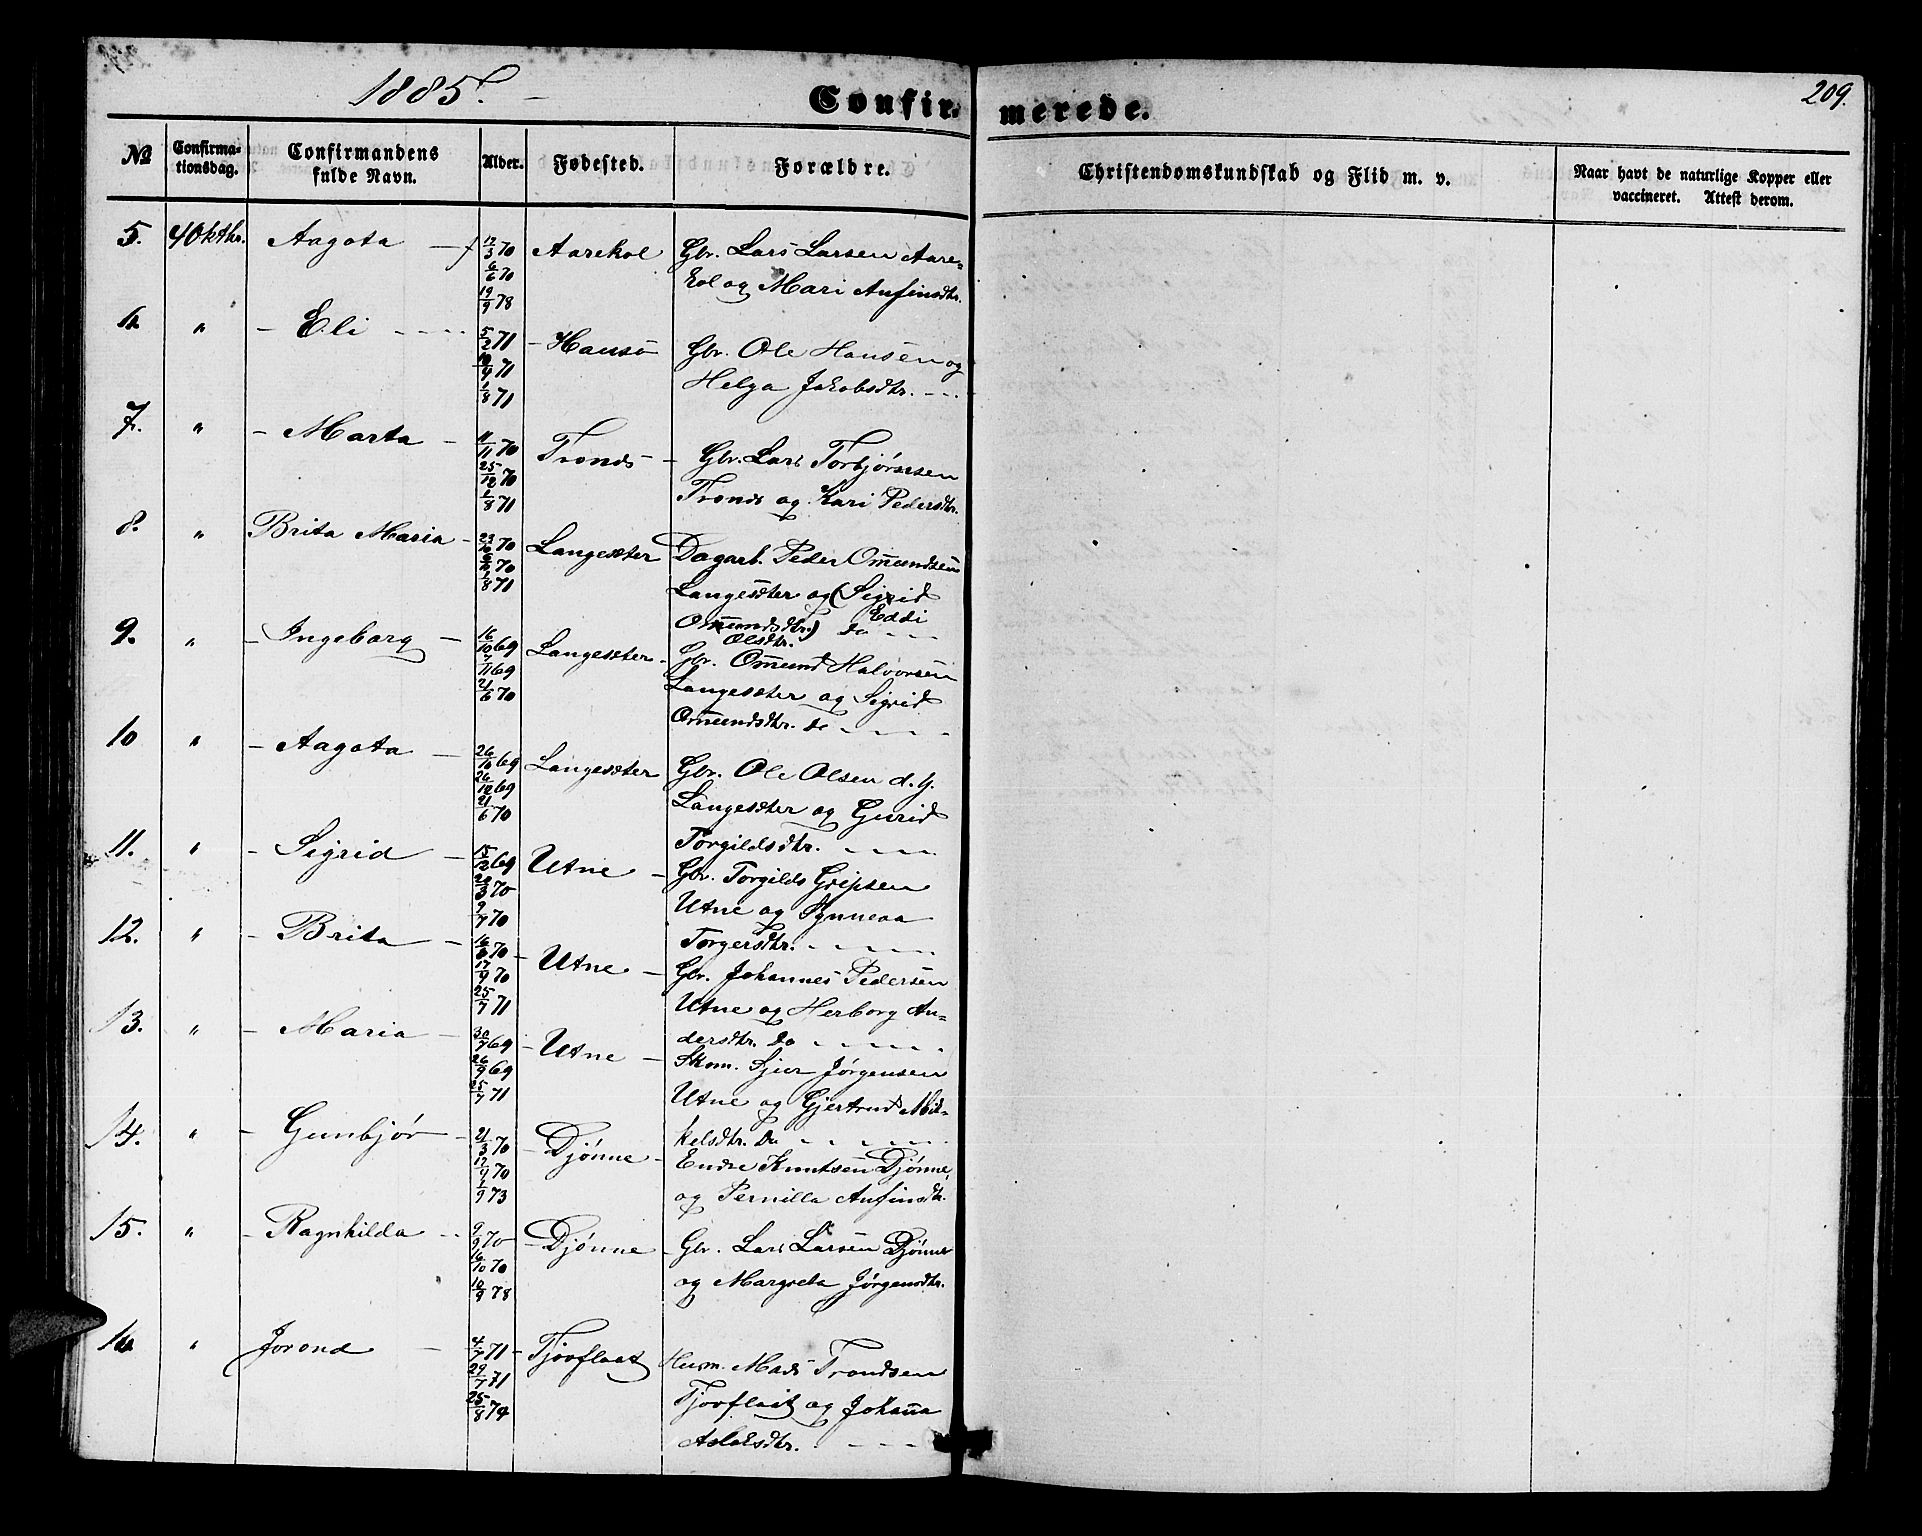 1885.
Confir-
merede.
209.
No
Confirma-
tionsdag.
Confirmandens
fulde Navn.
Alder.
Fødested.
Forældre.
Christendomskundskab og Flid m. v.
Naar havt de naturlige Kopper eller
vaccineret. Attest derom.
5. 4 Okthr. Aagota 12/3 70 Aarekol Gbr. Lars Larsen Aare-
6/6 70 kol og Mari Anfinsdtr.
19/9 78
6. " - Eli 5/2 71 - Hausø Gbr. Ole Hansen og
10/9 71 Helga Jakobsdtr.
1/8 71
7. " - Marta - 11/11 70 Tronds - Gbr. Lars Torbjørnsen
25/12 70 Tronds og Kari Pedersdtr.
1/8 71
8. " Brita Maria - 23/10 70 Langesæter Dagarb. Peder Omundsen
70 Langesæter og (Sigrid
1/8 71 Eddi
Omundsdtr.) do
Olsdtr.
9. " - Ingeborg - 16/10 69 Langesæter - Gbr. Omund Halvorsen
7/11 69 Langesæter og Sigrid
21/6 70 Omundsdtr. do
10 " - Aagota - 26/10 69 Langesæter Gbr. Ole Olsen d. y.
26/12 69 Langesæter og Gurid
21/6 70 Torgildsdtr.
11. " - Sigrid - 15/12 69 Utne - Gbr. Torgilds Gripsen
20/3 70 Utne og Synneva
9/7 70 Torgersdtr.
12. " - Brita - 16/8 70 - Utne - Gbr. Johannes Pedersen
17/9 70 Utne og Herborg An-
25/7 71 dersdtr. do
13. " - Maria - 30/7 69 - Utne - Skom. Sjur Jørgensen
26/9 69 Utne og Gjertrud Mik-
25/7 71 kelsdtr. do
14. " - Gunbjør - 21/3 70 - Djønne - Endre Knutsen Djønne
17/9 70 og Pernilla Anfinsdtr.
1/9 73
15. " - Ragnhilda - 9/9 70 - Djønne - Gbr. Lars Larsen Djønne
16/10 70 og Margreta Jørgensdtr.
10/9 78
16 " Jorond - 4/7 71 - Tjoflaat Husm. Mads Trondsen
29/7 71 Tjoflaat og Johanna
25/8 74 Aslaksdtr.